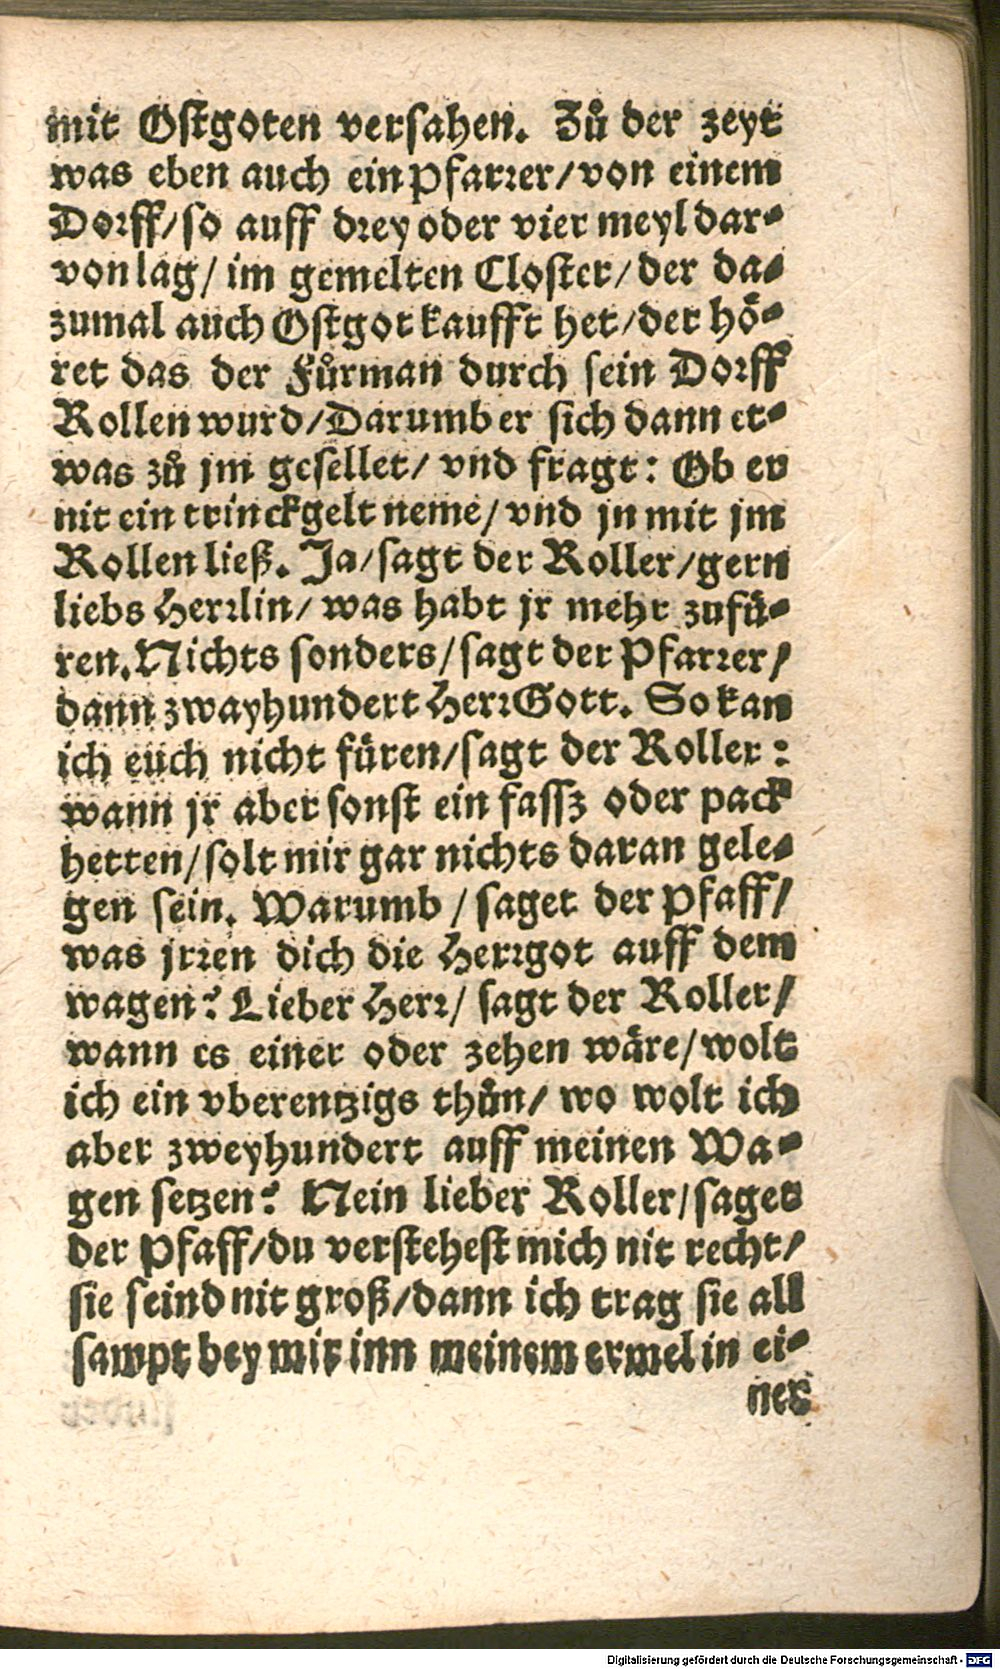 mit Ostgoten versahen. Zů der zeyt
was eben auch ein Pfarrer/von einem
Dorff/so auff drey oder vier meyl dar-
von lag/ im gemelten Closter/der da-
zumal auch Ostgot kaufft het/der hö-
ret das der Fůrman durch sein Dorff
Rollen wurd/Darumb er sich dann et-
was zů jm gesellet/ vnd fragt: Ob er
nit ein trinckgelt neme/ vnd jn mit jm
Rollen ließ. Ja/sagt der Roller/gern
liebs Herrlin/ was habt jr mehr zufü-
ren. Nichts sonders/sagt der Pfarrer/
dann zwayhundert HerrGott. So kan
ich euch nicht füren/sagt der Roller:
wann jr aber sonst ein fassz oder pack
hetten/solt mir gar nichts daran gele-
gen sein. Warumb/ saget der Pfaff/
was jrren dich die Herrgot auff dem
wagen? Lieber Herr/ sagt der Roller/
wann es einer oder zehen wäre/wolt
ich ein vberentzigs thůn/ wo wolt ich
aber zweyhundert auff meinen Wa-
gen setzen? Nein lieber Roller/saget
der Pfaff/du verstehest mich nit recht/
sie seind nit groß/dann ich trag sie all
sampt bey mir inn meinem ermel in ei-
ner
Digitalisierung gefördert durch die Deutsche Forschungsgemeinschaft - DFG